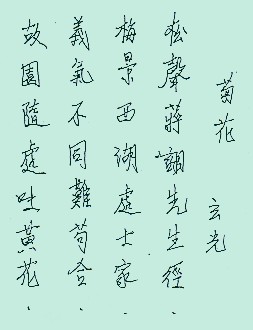 菊花
玄光
松聲蔣詡先生徑.
梅景西湖處士家.
義氣不同難苟合.
故園隨處吐黃花.